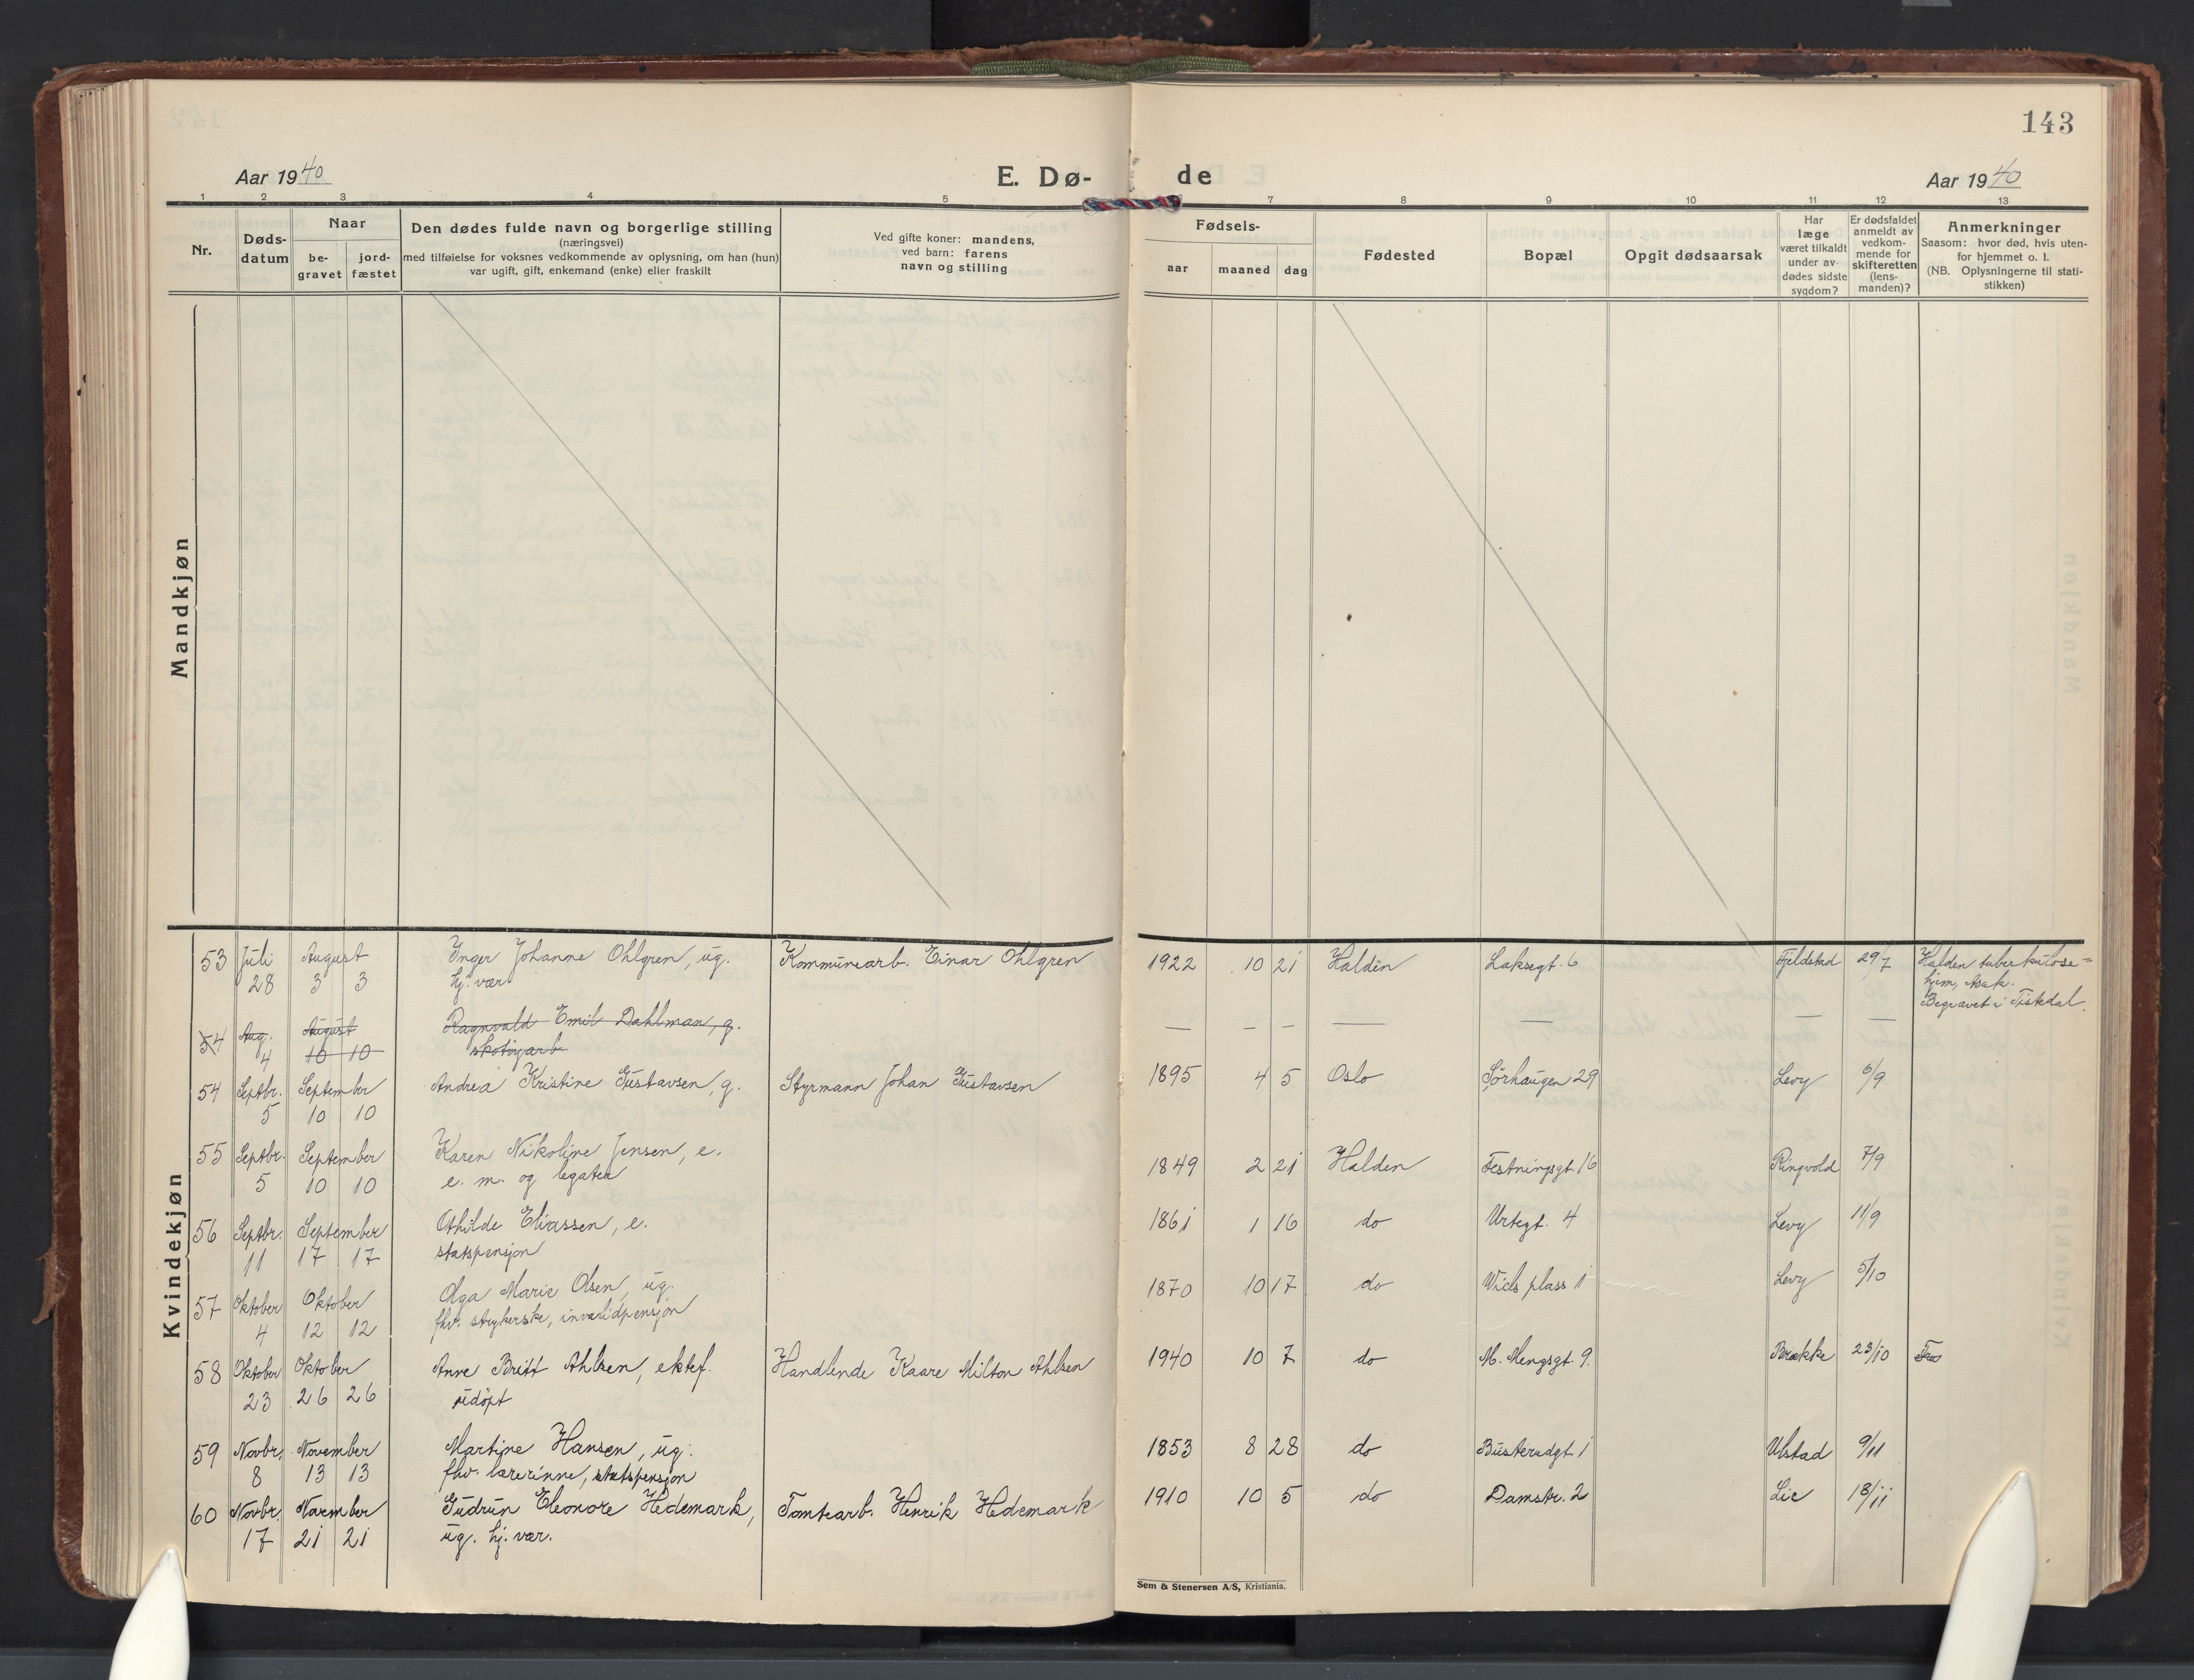 143
Aar 1940
E. Dø- de
Aar 1940
1 2 3 4 5 7 8 9 10 11 12 13
Nr.
Døds-
datum
Naar
be-
gravet
jord-
fæstet
Den dødes fulde navn og borgerlige stilling
(næringsvei)
med tilføielse for voksnes vedkommende av oplysning, om han (hun)
var ugift, gift, enkemand (enke) eller fraskilt
Ved gifte koner: mandens,
ved barn: farens
navn og stilling
Fødsels-
aar maaned dag
Fødested
Bopæl
Opgit dødsaarsak
Har
læge
været tilkaldt
under av-
dødes sidste
sygdom?
Er dødsfaldet
anmeldt av
vedkom-
mende for
skifteretten
(lens-
manden)?
Anmerkninger
Saasom: hvor død, hvis uten-
for hjemmet o. l.
(NB. Oplysningerne til stati-
stikken)
Mandkjøn
Kvindekjøn
53 Juli August Inger Johanne Ohlgren, ug. Kommunearb. Einar Ohlgren 1922 10 21 Halden Laksegt. 6 Fjeldstad 29/7 Halden tuberkulose=
28 3 3 hj. vær hjem, Asak.
Begravet i Tistedal.
54 Aug. August Ragnvald Emil Dahlman, g. — — — — — — —
4 10 10 skotøyarb.
54 Septbr. September Andrea Kristine Gustavsen, g. Styrmann Johan Gustavsen 1895 4 5 Oslo Sørhaugen 29 Levy 6/9
5 10 10
55 Septbr. September Karen Nikoline Jensen, e. 1849 2 21 Halden Festningsgt. 16 Ringvold 7/9
5 10 10 e. m. og legater
56 Septbr. September Othilde Eliassen, e. 1861 1 16 do Urtegt. 4 Levy 11/9
11 17 17 statspensjon
57 Oktober Oktober Olga Marie Olsen, ug. 1870 10 17 do Wiels plass 1 Levy 5/10
4 12 12 fhv. strykerske, invalidpensjon
58 Oktober Oktober Anne Britt Ahlsen, ektef. Handlende Kaare Milton Ahlsen 1940 10 7 do M. Mengsgt. 9. Brække 23/10
23 26 26 udøpt
59 Novbr. November Martine Hansen, ug. 1853 8 28 do Busterudgt. 1 Ulstad 9/11
8 13 13 fhv. lærerinne, statspensjon
60 Novbr. November Gudrun Eleonore Hedemark, Tomtearb. Henrik Hedemark 1910 10 5 do Damstr. 2 Lie 18/11
17 21 21 ug. hj. vær.
Sem & Stenersen A/S, Kristiania.